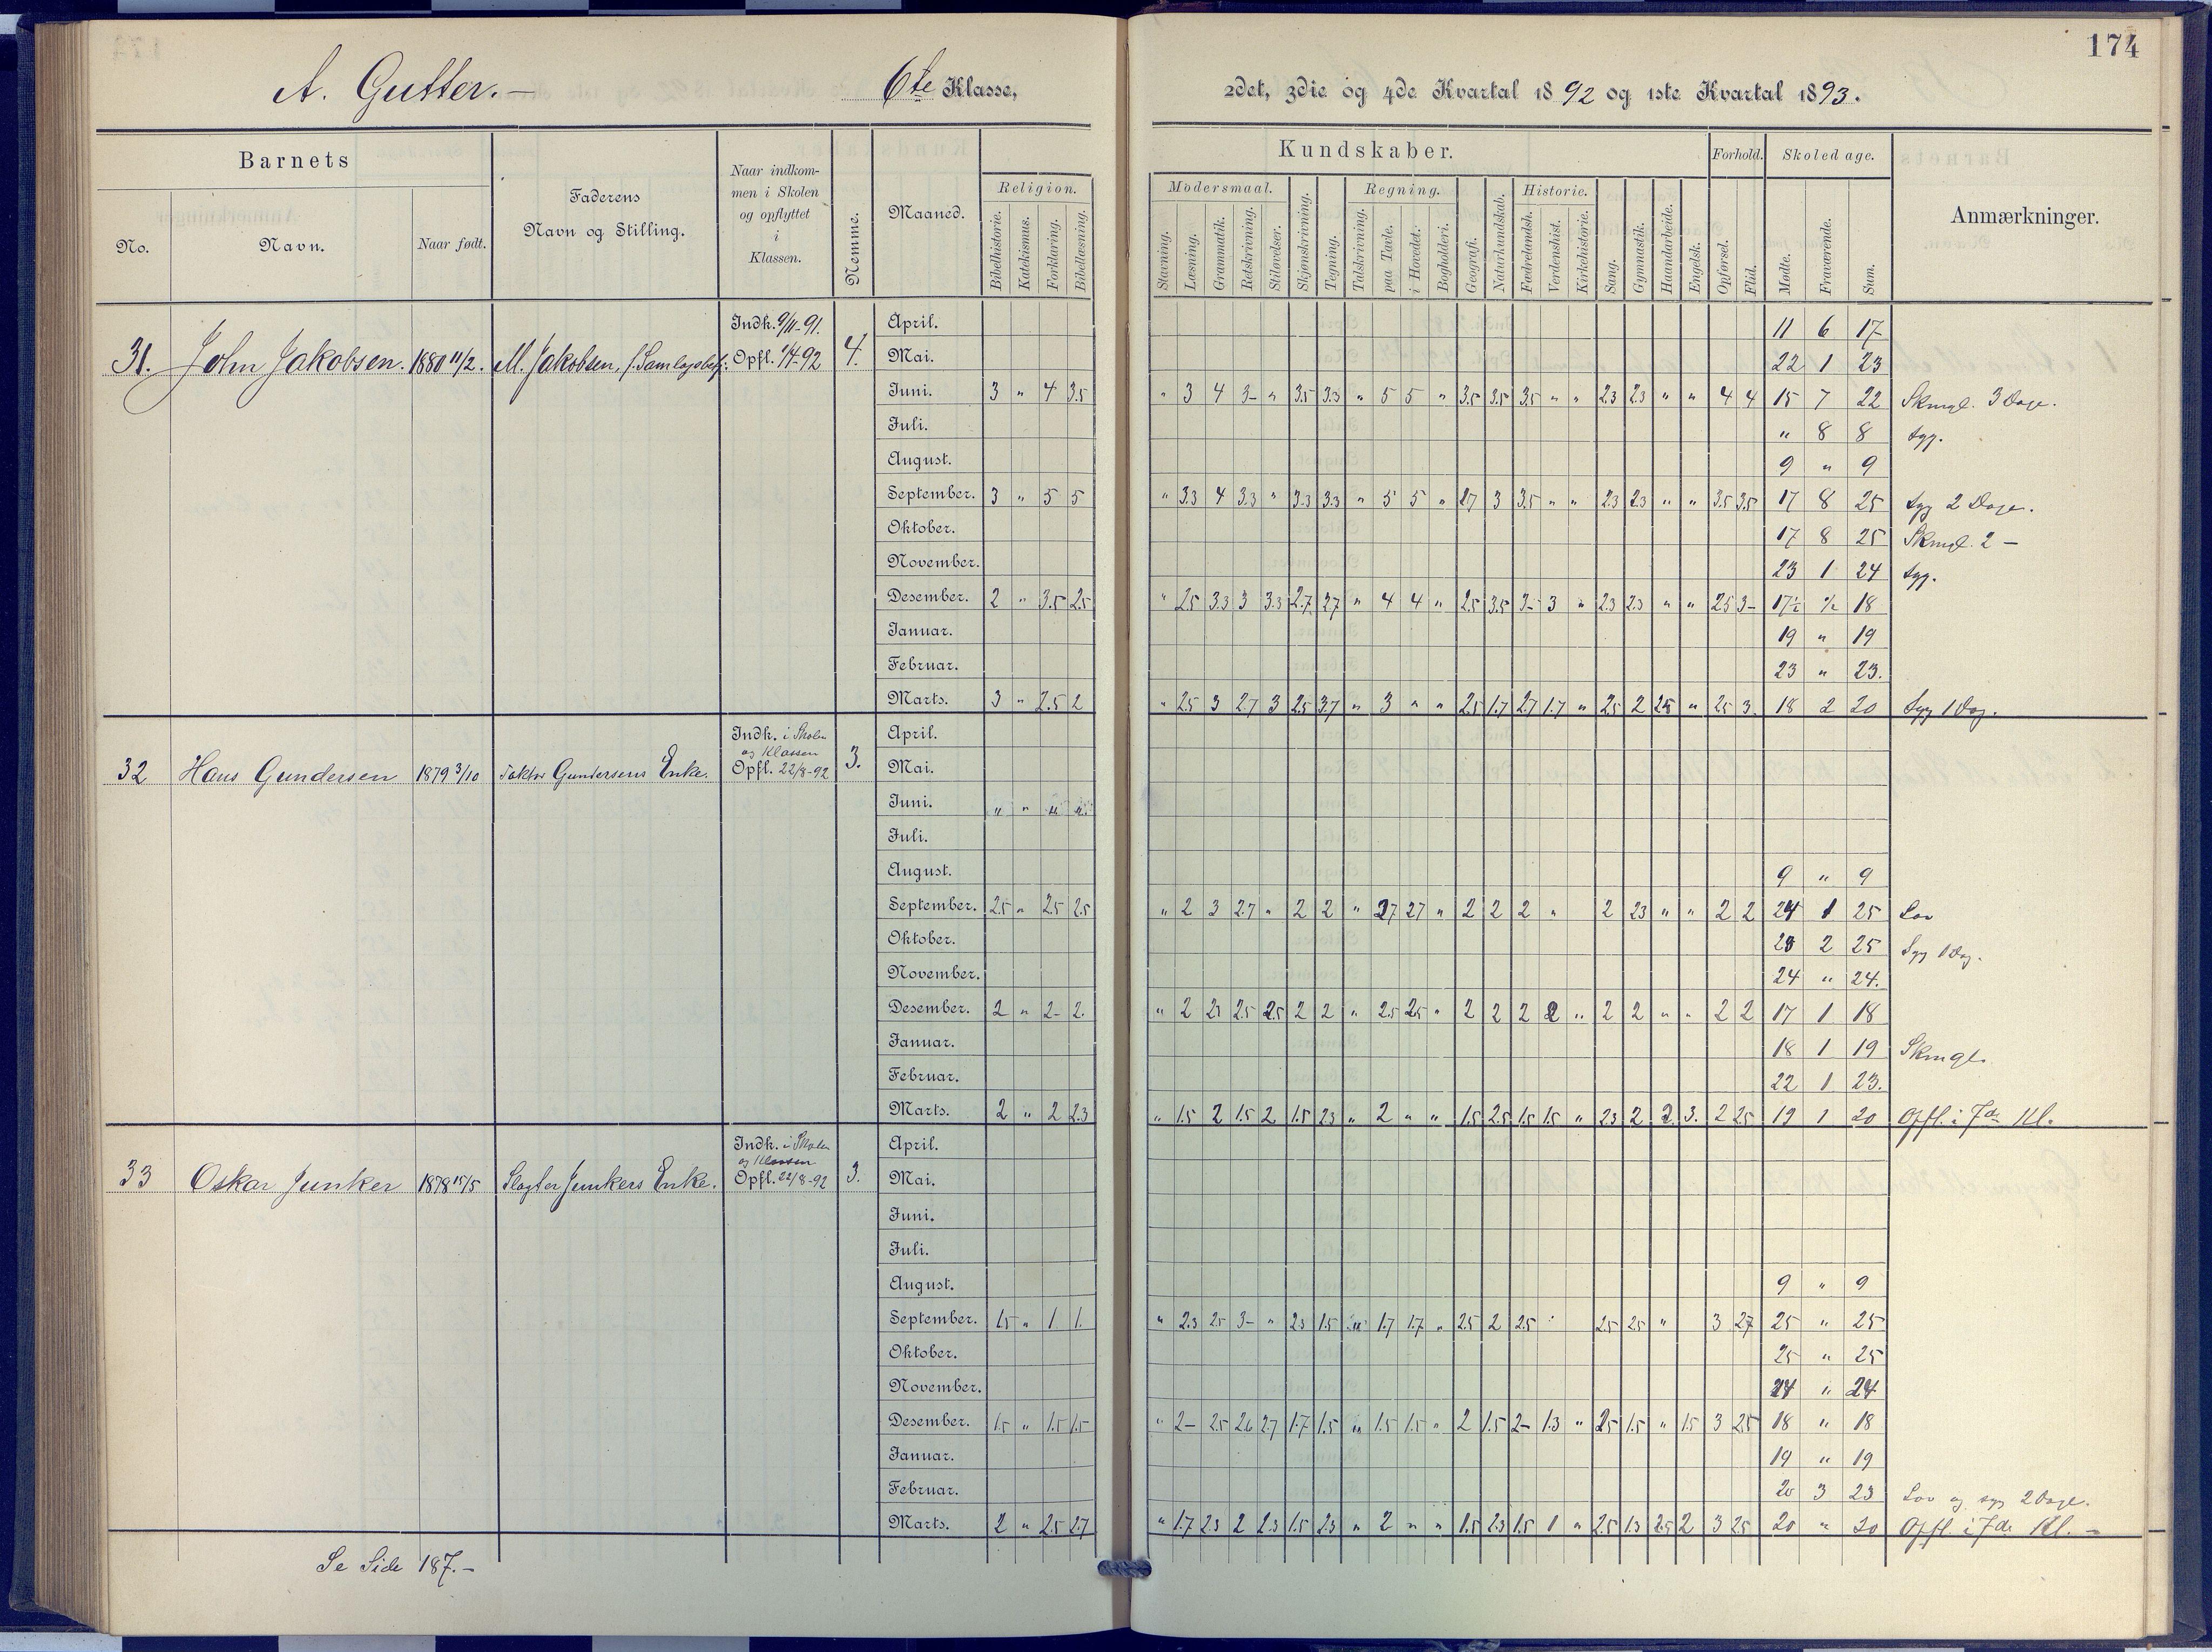 174
A. Gutter.—
6te Klasse,
2det, 3die og 4de Kvartal 1892 og 1ste Kvartal 1893.
Barnets
No.
Navn.
Naar født.
Faderens
Navn og Stilling.
Naar indkom-
men i Skolen
og opflyttet
i
Klassen.
Nemme.
Maaned.
Kundskaber.
Religion.
Bibelhistorie.
Katekismus.
Forklaring.
Bibellæsning.
Modersmaal.
Stavning.
Læsning.
Grammatik.
Retskrivning.
Stiløvelser.
Skjønskrivning.
Tegning.
Regning.
Talskrivning.
paa Tavle.
i Hovedet.
Bogholderi.
Geografi.
Naturkundskab.
Historie.
Fædrelandsh.
Verdenshist.
Kirkehistorie.
Sang.
Gymnastik.
Haandarbeide.
Engelsk.
Forhold.
Opførsel.
Flid.
Skoledage.
Mødte.
Fraværende.
Sum.
Anmærkninger.
31. John Jakobsen. 1880 11/2. M. Jakobsen, Indk. 9/11-91. Opfl. 1/4-92 4.
April. 11 6 17
Mai. 22 1 23
Juni. 3 " 4 3.5 " 3 4 3- " 3.5 3.3 " 5 5 " 3.5 3.5 3.5 " " 2.3 2.3 " " 4 4 15 7 22 Skmgl. 3 Dage.
Juli. " 8 8 Syg.
August. 9 " 9
September. 3 " 5 5 " 3.3 4 3.3 " 3.3 3.3 " 5 5 " 2.7 3 3.5 " " 2.3 2.3 " " 3.5 3.5 17 8 25 Syg 2 Dage.
Oktober. 17 8 25 Skmgl. 2 —
November. 23 1 24 Syg.
Desember. 2 " 3.5 2.5 " 2.5 3.3 3 3.3 2.7 2.7 " 4 4 " 2.5 3.5 3- 3 " 2.3 2.3 " " 2.5 3- 17½ ½ 18
Januar. 19 " 19
Februar. 23 " 23.
Marts. 3 " 2.5 2 " 2.5 3 2.7 3 2.5 3.7 " 3 " " 2.5 1.7 2.7 1.7 " 2.5 2 2.5 " 2.5 3. 18 2 20 Syg 1 Dag.
32 Hans Gundersen 1879 3/10 Faktor Gundersens Enke. Indk. i Skolen og Klassen Opfl. 22/8-92 3.
April.
Mai.
Juni. " " " "
Juli.
August. 9 " 9
September. 2.5 " 2.5 2.5 " 2 3 2.7 " 2 2 " 2.7 2.7 " 2 2 2 " 2 2.3 " " 2 2 24 1 25 Lov
Oktober. 23 2 25 Syg 1 Dag.
November. 24 " 24.
Desember. 2 " 2- 2. " 2 2.5 2.5 2.5 2 2 " 2.5 2.5 " 2 2 2 2 " 2 2 " " 2 2 17 1 18
Januar. 18 1 19 Skmgl.
Februar. 22 1 23.
Marts. 2 " 2 2.3 " 1.5 2 1.5 2 1.5 2.3 " 2 " " 1.5 2.5 1.5 1.5 " 2.3 2 2. 3. 2 2.5 19 1 20 Opfl. i 7de Kl.
33 Oskar Junker 1878 15/5 Slagter Junkers Enke. Indk. i Skolen og Klassen Opfl. 22/8-92 3.
April.
Mai.
Juni.
Juli.
August. 9 " 9
September. 1.5 " 1 1. " 2.3 2.5 3- " 2.3 1.5 " 1.7 1.7 " 2.5 2 2.5 " 2.5 2.5 " 3 2.7 25 " 25
Oktober. 25 " 25
November. 24 " 24
Desember. 1.5 " 1.5 1.5 " 2- 2.5 2.6 2.7 1.7 1.5 " 1.5 1.5 " 2 1.5 2- 1.3 " 2.5 1.5 " 1.5 3 2.5 18 " 18
Januar. 19 " 19
Februar. 20 3 23 Lov og syg 2 Dage.
Marts. 2 " 2.5 2.7 " 1.7 2.3 2 2.3 1.5 2.3 " 2 " " 1.5 2.3 1.5 1 " 2.5 1.3 2.5 2 3 2.5 20 " 20 Opfl. i 7de Kl. —
Se Side 187.—